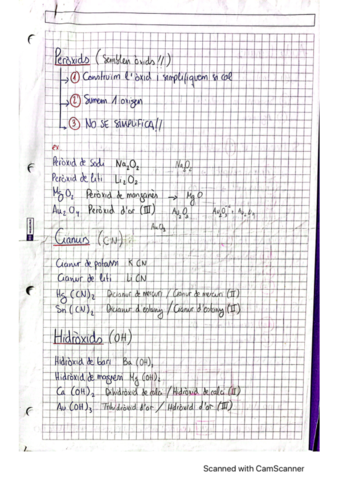 Peròxids (semblen òxids!!)
① Construim l'òxid i simplifiquem si cal
② Sumem 1 oxigen
③ NO SE SIMPLIFICA!!
ex:
Peròxid de sodi Na₂O₂ Na₂O₂
Peròxid de liti Li₂O₂
MgO₂ Peròxid de → MgO
Au₂O₄ Peròxid d'or (III) Au₂O₃
Cianurs (CN)
Cianur de potassi KCN
Cianur de liti LiCN
Hg(CN)₂ Dicianur de mercuri / Cianur de mercuri (II)
Sn(CN)₂ Dicianur d'estany / Cianur d'estany (II)
Hidròxids (OH)
Hidròxid de bari Ba(OH)₂
Hidròxid de magnesi Mg(OH)₂
Ca(OH)₂ Dihidròxid de calci / Hidròxid de calci (II)
Au(OH)₃ Trihidròxid d'or / Hidròxid d'or (III)
Scanned with CamScanner